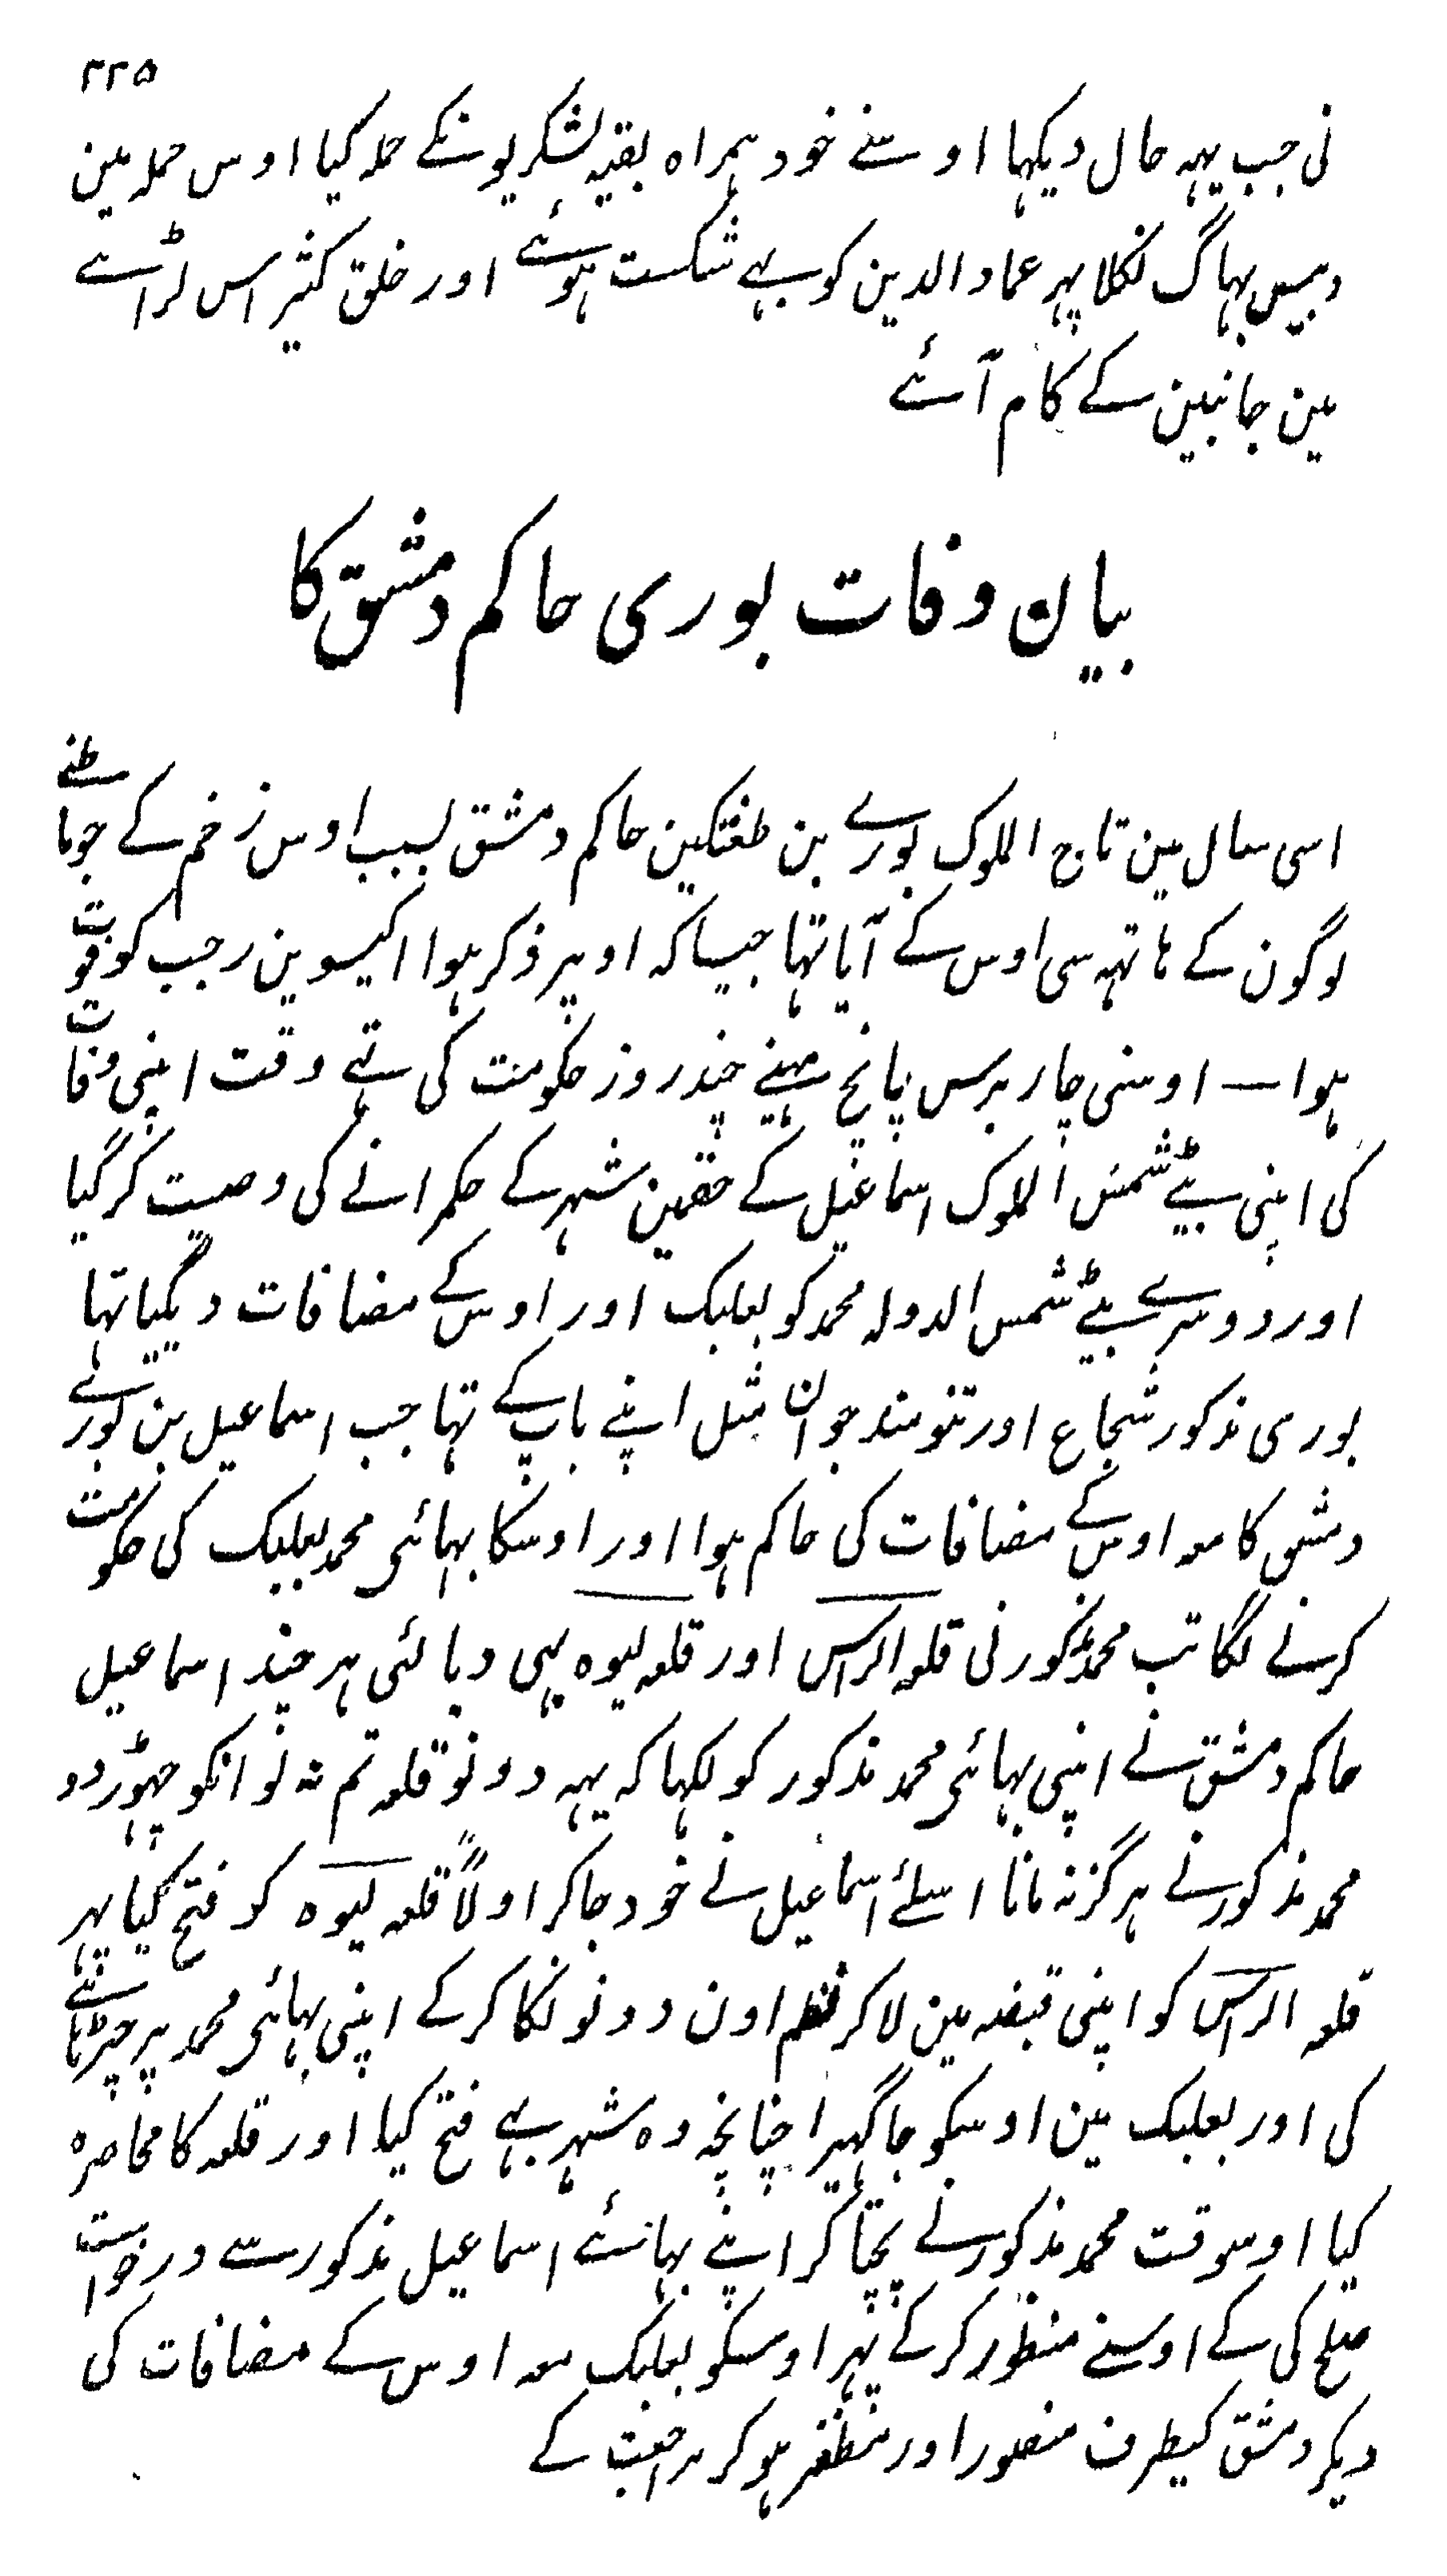 ۲۲۵
نی جب یہہ حال دیکہا اوسنے خود ہمراہ بقیہ لشکریونکے حملہ کیا اوس حملہ مین
دبیس بہاگ نکلا پہر عماد الدین کو بہے شکست ہوئے اور خلق کثیر اس لڑائے
مین جانبین کے کام آئے
بیان وفات بوری حاکم دمشق کا
اسی سال مین تاج الملوک بورے بن طغتکین حاکم دمشق بسبب اوس زخم کے جو باطنے
لوگون کے ہاتہہ سی اوس کے آیا تہا جیسا کہ اوپر ذکر ہوا اکیسوین رجب کو فوت
ہوا — اوسنی چار برس پانچ مہینے چند روز حکومت کی تہے وقت اپنی وفات
کی اپنی بیٹے شمس الملوک اسماعیل کے حقمین شہر کے حکمرانے کی وصیت کر گیا
اور دوسرے بیٹے شمس الدولہ محمد کو بعلبک اور اوس کے مضافات دیگیا تہا
بوری مذکور شجاع اور تنومند جوان مثل اپنے باپ کے تہا جب اسماعیل بن بورے
دمشق کا معہ اوس کے مضافات کی حاکم ہوا اور اوسکا بہائی محمد بعلبک کی حکومت
کرنے لگا تب محمد مذکور نی قلعہ الراس اور قلعہ لبوہ بہی دبا لئی ہر چند اسماعیل
حاکم دمشق نے اپنی بہائی محمد مذکور کو لکہا کہ یہہ دونو قلعہ تم نہ لو انکو چہوڑ دو
محمد مذکور نے ہرگز نہ مانا اسلئے اسماعیل نے خود جاکر اولاً قلعہ لبوہ کو فتح کیا پہر
قلعہ الراس کو اپنی قبضہ مین لاکر نظم اون دونو نکا کرکے اپنی بہائی محمد پر چڑہائے
کی اور بعلبک مین اوسکو جا گہیرا چنانچہ وہ شہر بہے فتح کیا اور قلعہ کا محاصرہ
کیا اوسوقت محمد مذکور نے پچتاکر اپنے بہائے اسماعیل مذکور سے درخواست
صلح کی کے اوسنے منظور کرکے پہر اوسکو بعلبک معہ اوس کے مضافات کی
دیکر دمشق کیطرف منصور اور مظفر ہو کر مراجعت کے